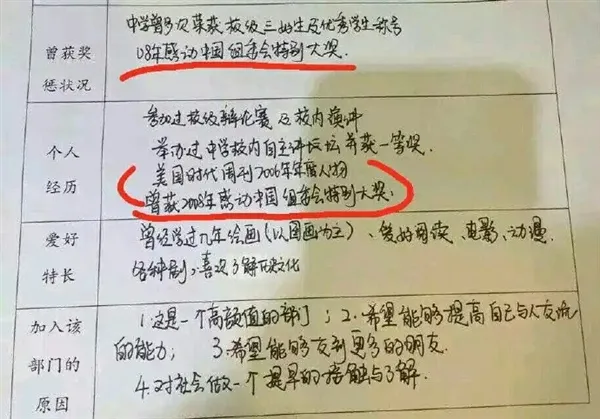 曾获奖
惩状况
中学曾多次荣获校级三好生及优秀学生称号
08年感动中国组委会特别大奖.
个人
经历
参加过校级辩论赛及校内演讲
举办过中学校内自主讲坛并获一等奖.
美国时代周刊2006年年度人物
曾获2008年感动中国组委会特别大奖.
爱好
特长
曾经学过几年绘画(以国画为主)、爱好阅读、电影、动漫
各种剧,喜欢了解历史文化
加入该
部门的
原因
1.这是一个高颜值的部门;2.希望能够提高自己与人交流
的能力;3.希望能够交到更多的朋友.
4.对社会做一个提早的接触与了解.